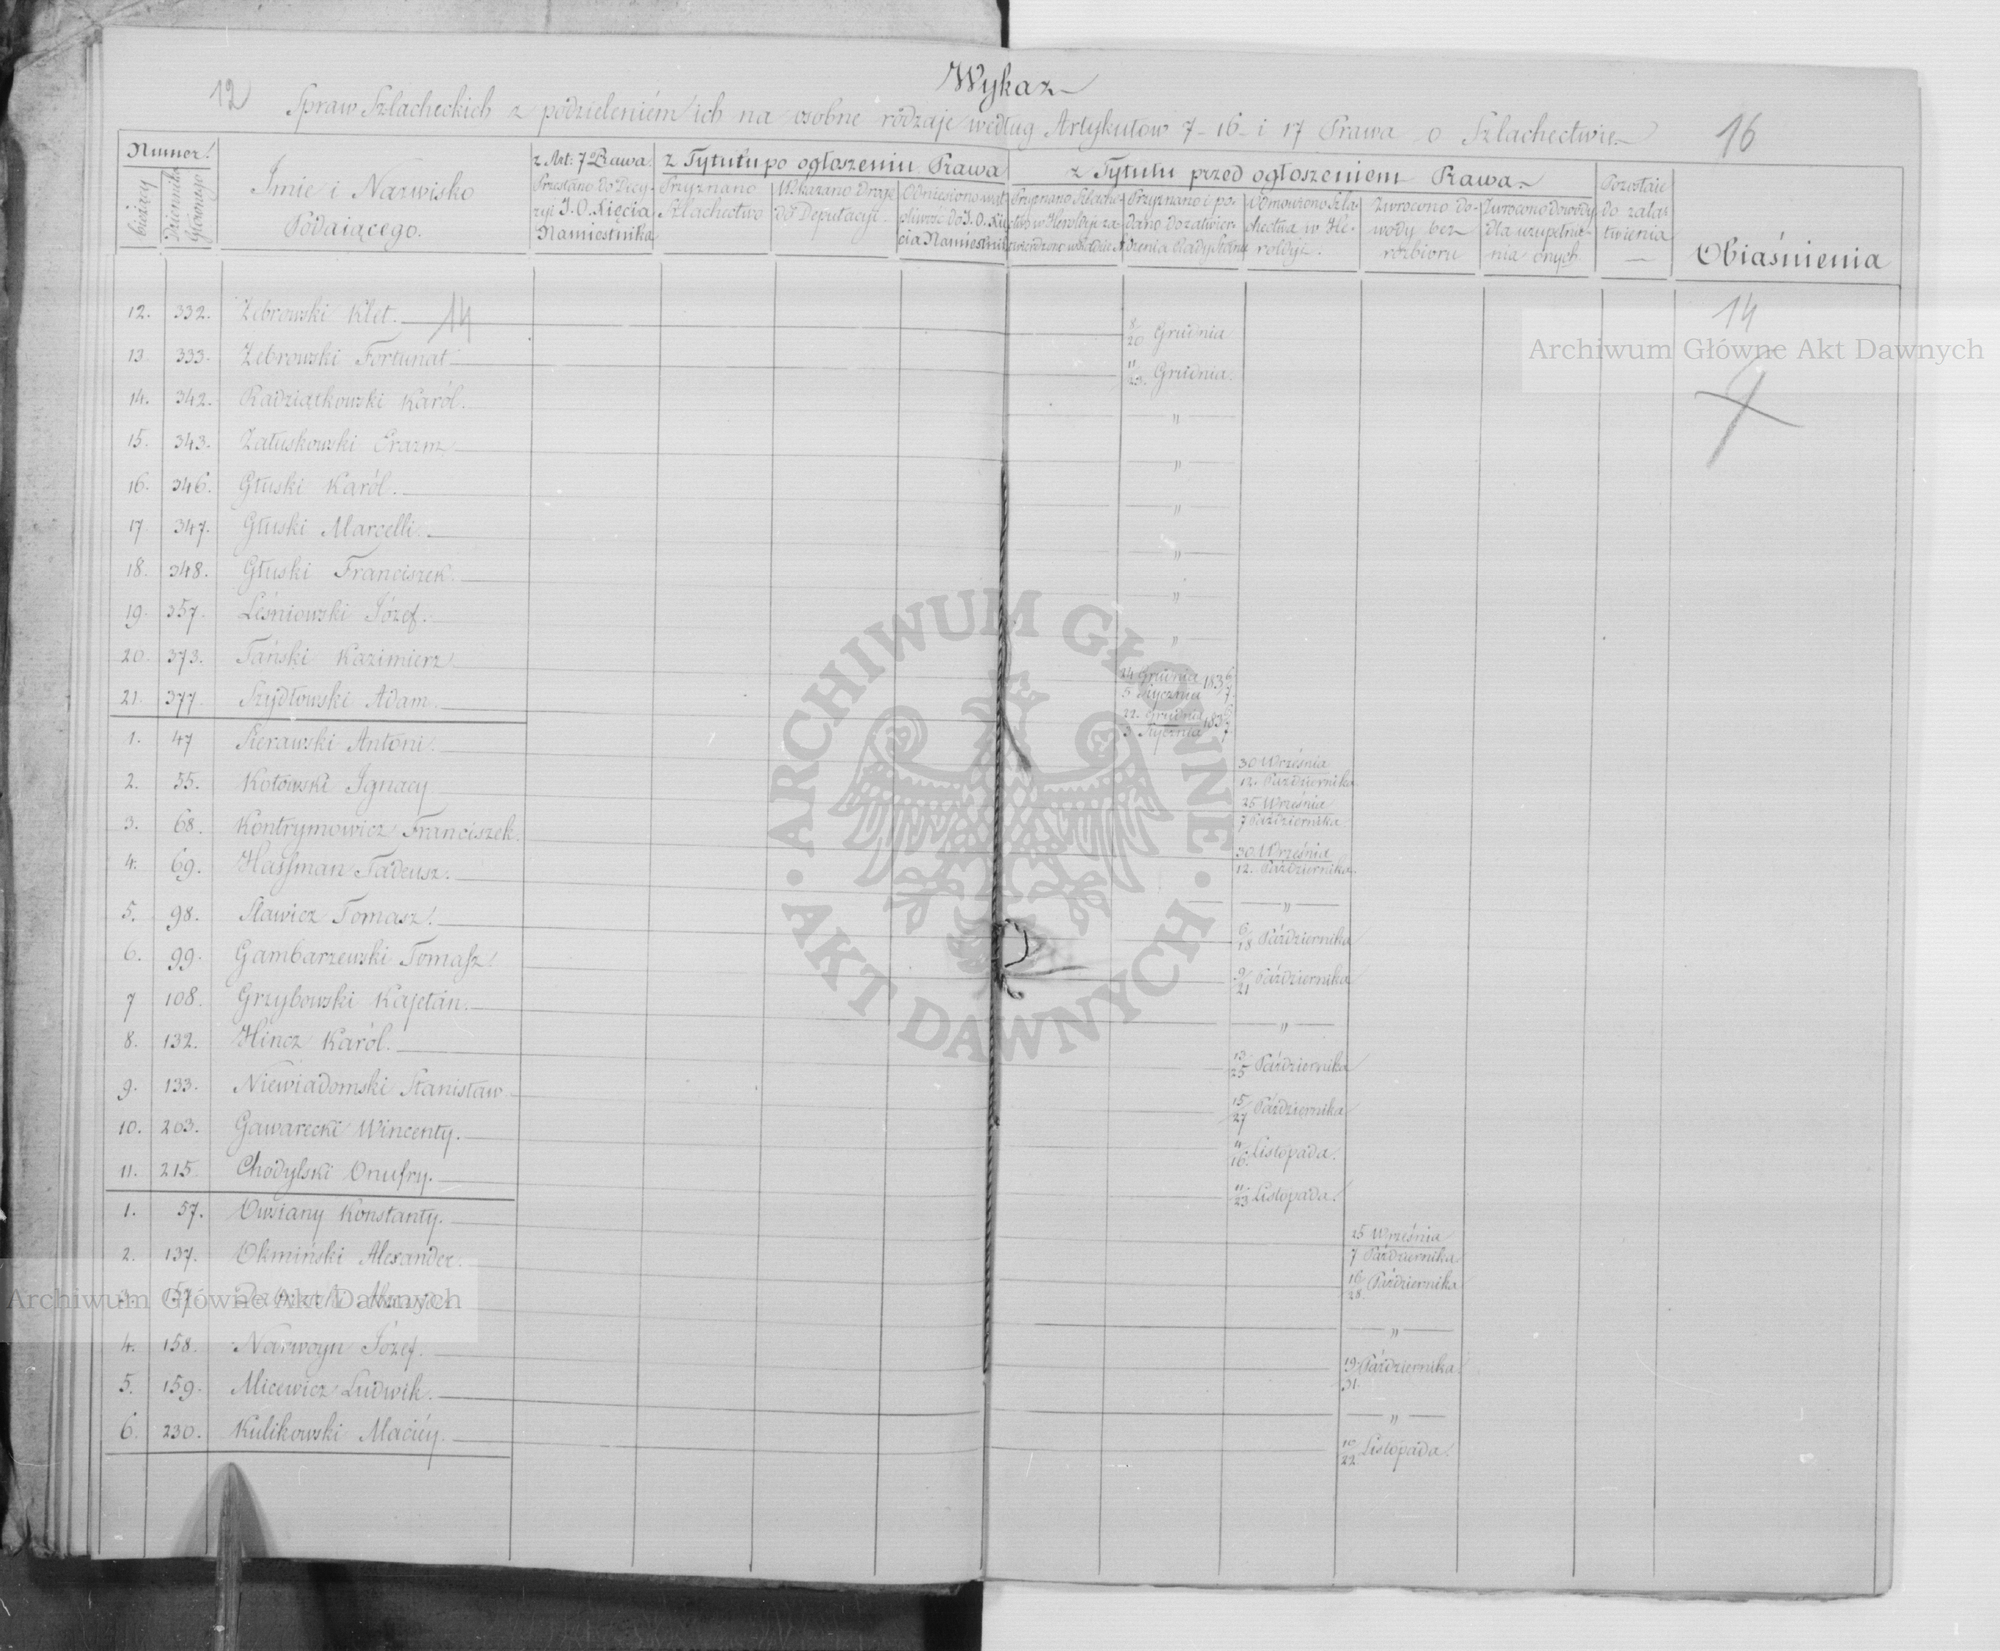 Wykaz
12
Spraw Szlacheckich z podzieleniém ich na osobne rodzaje według Artykułow 7- 16- i 17 Prawa o Szlachectwie
16
Numer
bieżący
Dziennika Głównego
Imie i Nazwisko
Podaiącego.
z Art: 7 Prawa.
Przesłano do Decy-
zyi J.O. Xięcia
Namiestnika
z Tytułu po ogłoszeniu Prawa
Przyznano
Szlachectwo
Wskazano Drogę
do Deputacyi
Odniesiono
do J.O. Xię
cia Namiestnika
z Tytułu przed ogłoszeniem Prawa
Przyznano Szlache-
ctwo w Heroldyi
Przyznano i po-
dano do zatwier-
dzenia Rady
Odmówiono Szla-
chectwa w He-
roldyi.
Zwrócono do-
wody bez
rozbioru
Zwrocono dowody
dla uzupełnie-
nia onych
Pozostaie
do zała-
twienia
Obiaśnienia
12. 332. Żebrowski Klet. 14 8/20 Grudnia 14
13. 333. Żebrowski Fortunat 11/23. Grudnia.
14. 342. Radziątkowski Karól. "
15. 343. Załuskowski Erazm "
16. 346. Głuski Karól. "
17. 347. Głuski Marcelli. "
18. 348. Głuski Franciszek. "
19. 357. Leśniowski Józef. "
20. 373. Tański Kazimierz 24 Grudnia / 5 Stycznia 1836/7
21. 377. Szydłowski Adam. 22. Grudnia / 3 Stycznia 1836/7
1. 47 Sierawski Antoni. 30 Września / 12. Października
2. 55. Kotowski Ignacy 25 Września / 7 Października
3. 68. Kontrymowicz Franciszek. 30. Września / 12. Października
4. 69. Hassman Tadeusz. "
5. 98. Sławicz Tomasz. 6/18 Października
6. 99. Gambarzewski Tomasz 9/21 Października
7 108. Grzybowski Kajetan. "
8. 132. Hincz Karól. 13/25 Października
9. 133. Niewiadomski Stanisław 15/27 Października
10. 203. Gawarecki Wincenty. 4/16. Listopada.
11. 215. Chodylski Onufry. 11/23 Listopada.
1. 57. Owsiany Konstanty. 25 Września / 7 Października
2. 137. Okmiński Alexander. 16/28 Października
3. 157. "
4. 158. Narwoyn Józef. 19/31. Października
5. 159. Micewicz Ludwik. "
6. 230. Kulikowski Maciéy. 10/22 Listopada.
Archiwum Główne Akt Dawnych
Archiwum Główne Akt Dawnych
ARCHIWUM GŁÓWNE · AKT DAWNYCH ·